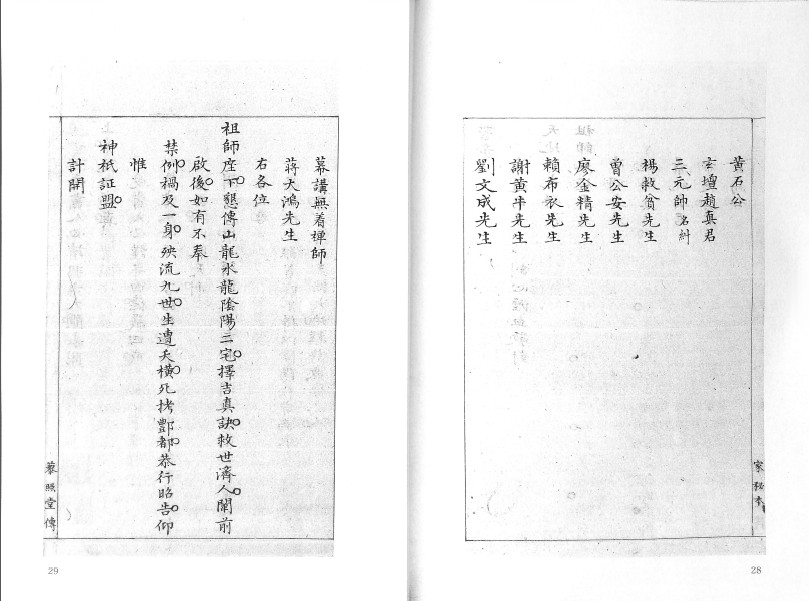 黃石公
玄壇趙真君
三元帥名糾
楊救貧先生
曾公安先生
廖金精先生
賴布衣先生
謝黃牛先生
劉文成先生
家秘本
28
幕講無着禪師
蔣大鴻先生
右各位
祖師座下。懇傳山龍水龍陰陽二宅。擇吉真訣。救世濟人。闡前
啟後。如有不奉
禁例。禍及一身。殃流九世。生遭夭橫。死拷酆都。恭行昭告。仰
惟
神祇証盟。
計開
藜照堂傳
29